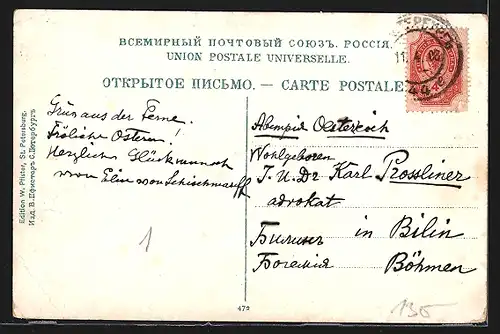 ВСЕМІРНЫЙ ПОЧТОВЫЙ СОЮЗЪ. РОССІЯ.
UNION POSTALE UNIVERSELLE.
ОТКРЫТОЕ ПИСЬМО. — CARTE POSTALE.
11.4.08
Grüs aus der Ferne.
Fröliche Ostern!
Herzlichen Glückwunsch
von Elin von Schischmareff
Австрія Oesterreich
Wohlgeboren
J. U. Dr Karl Prossliner
advokat
Билинъ in Bilin
Богемія Böhmen
Edition W. Pfister, St. Petersburg.
Изд. В. Пфистеръ С. Петербургъ
1
472
135